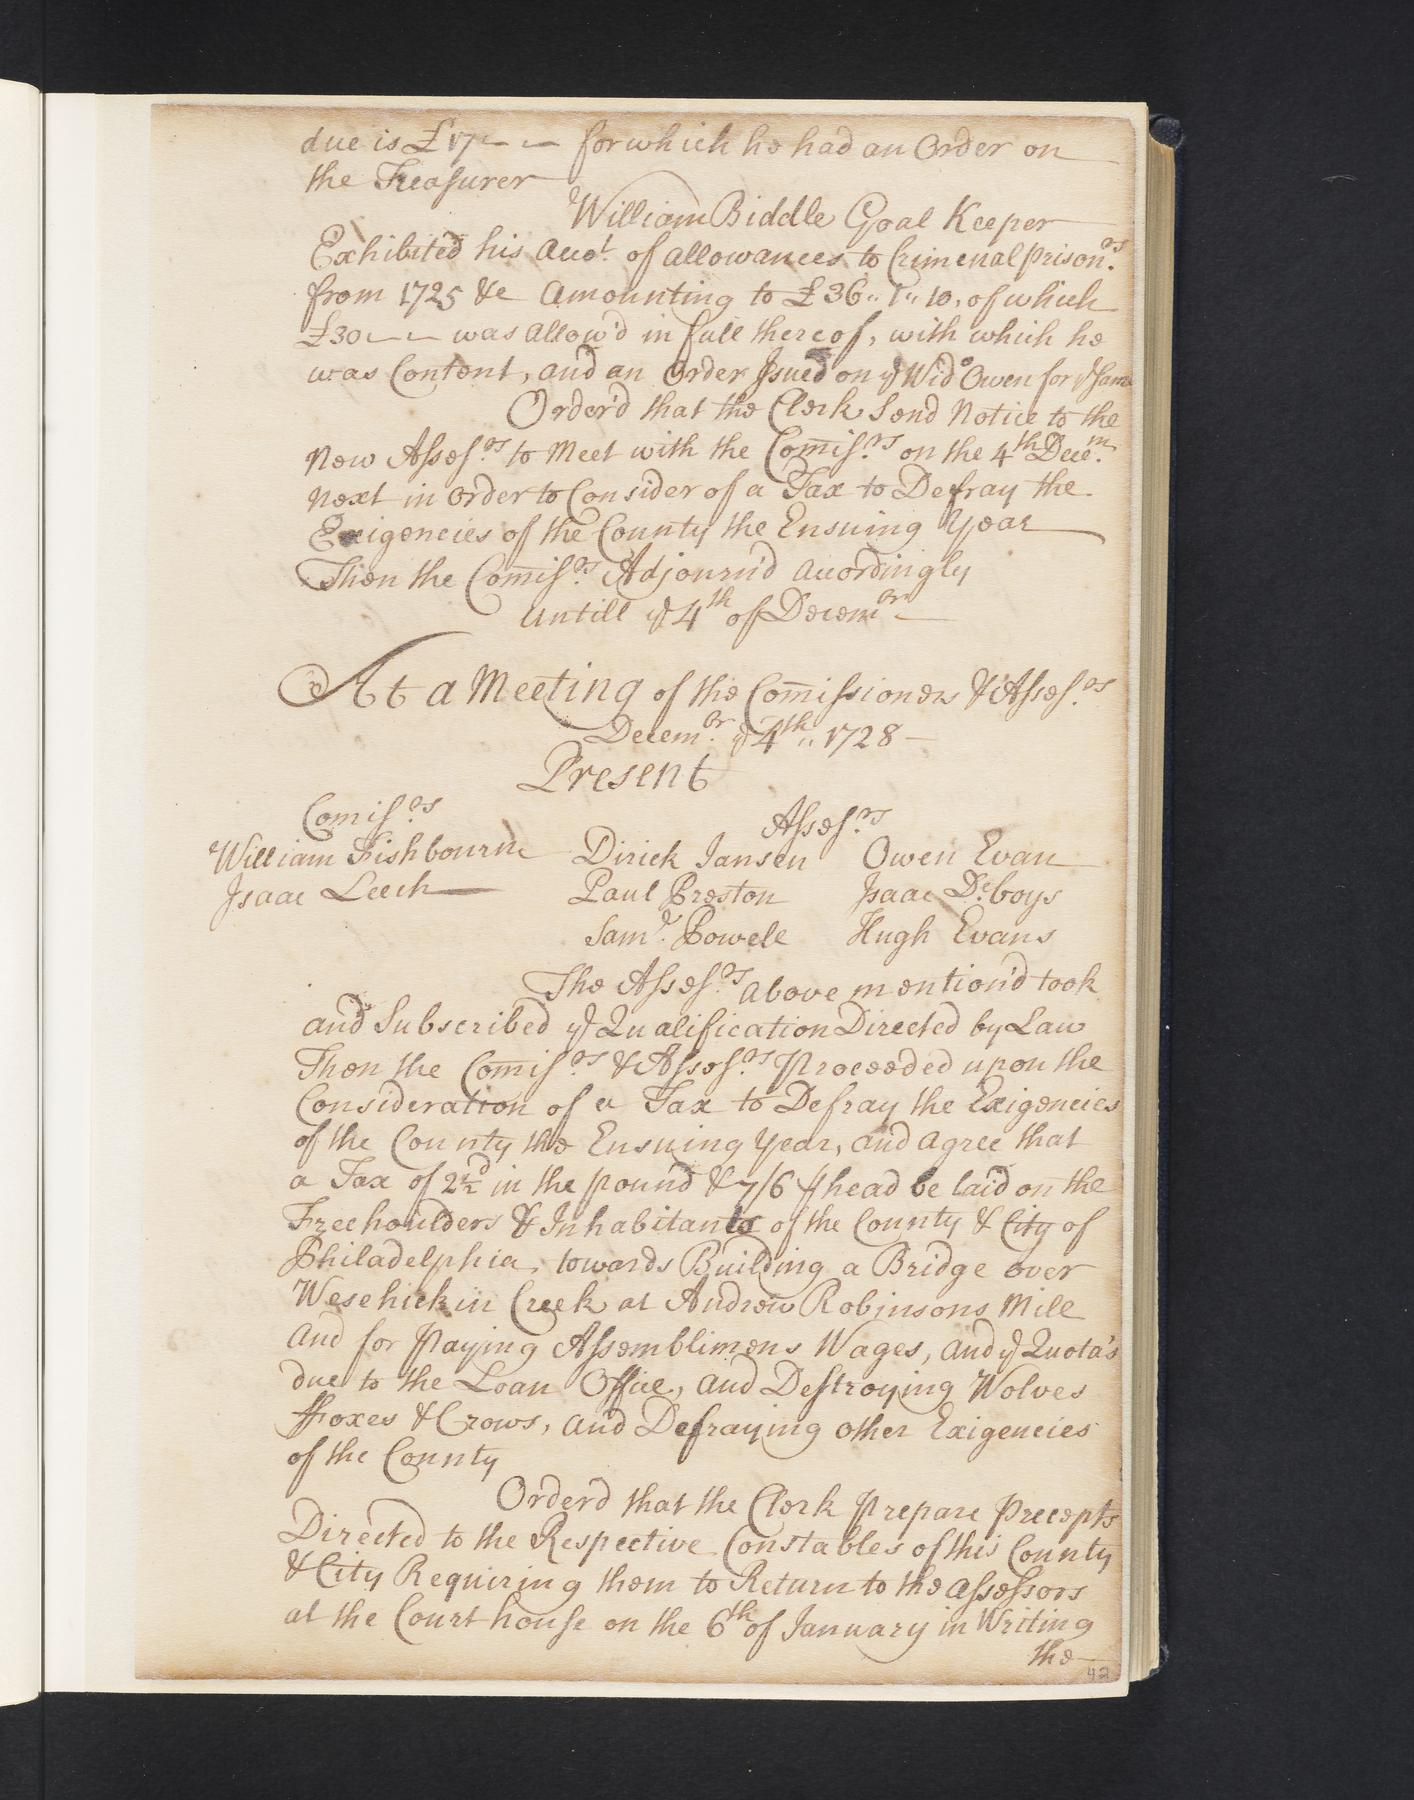 due is £17 — — for which he had an Order on
the Treasurer
William Biddle Goal Keeper
Exhibited his Acco.t of allowances to Crimenal prison.rs
from 1725 &c Amounting to £36,, 1,, 10, of which
£30 — — was allow'd in full thereof, with which he
was Content, and an Order Issued on ye Wido Owen for ye Same
Order'd that the Clerk Send Notice to the
New Asses.rs to Meet with the Comis.rs on the 4th Decem.r
next in order to Consider of a Tax to Defray the
Exigencies of the County the Ensuing Year
Then the Comis.rs Adjourn'd accordingly
Untill ye 4th of Decem.br
At a Meeting of the Comissioners & Asses.rs
Decem.br ye 4th,, 1728 —
Present
Comis.rs
Asses.rs
William Fishbourn Dirick Jansen Owen Evan
Isaac Leech Paul Preston Isaac De.boys
Sam.l Powell Hugh Evans
The Asses.rs above mention'd took
and Subscribed ye Qualification Directed by Law
Then the Comis.rs & Asses.rs Proceeded upon the
Consideration of a Tax to Defray the Exigencies
of the County the Ensuing Year, and agree that
a Tax of 2½d in the pound & 7/6 ⅌ head be laid on the
Freehoulders & Inhabitants of the County & City of
Philadelphia, towards Building a Bridge over
Wesehickin Creek at Andrew Robinsons Mill
and for Paying Assemblimens Wages, and ye Quota's
due to the Loan Office, and Destroying Wolves
ffoxes & Crows, and Defraying other Exigencies
of the County
Orderd that the Clerk Prepare Precepts
Directed to the Respective Constables of this County
& City Requiring them to Return to the assessors
at the Court house on the 6th of January in Writing
the
42